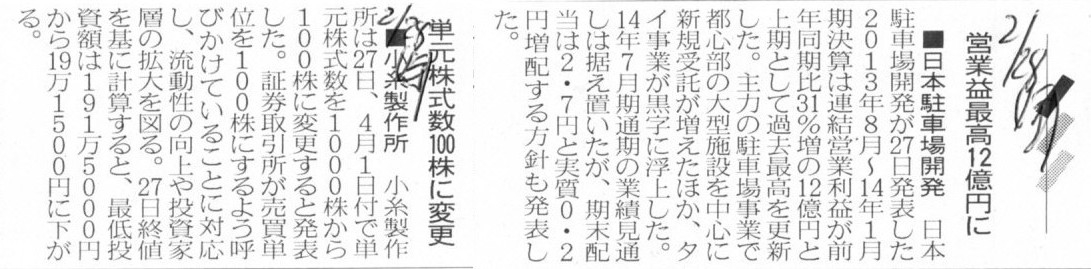 2/28
営業益最高12億円に
■日本駐車場開発　日本
駐車場開発が27日発表した
２０１３年８月〜14年１月
期決算は連結営業利益が前
年同期比31％増の12億円と
上期として過去最高を更新
した。主力の駐車場事業で
都心部の大型施設を中心に
新規受託が増えたほか、タ
イ事業が黒字に浮上した。
14年７月期通期の業績見通
しは据え置いたが、期末配
当は２・７円と実質０・２
円増配する方針も発表し
た。
2/28
単元株式数100株に変更
■小糸製作所　小糸製作
所は27日、４月１日付で単
元株式数を１０００株から
１００株に変更すると発表
した。証券取引所が売買単
位を１００株にするよう呼
びかけていることに対応
し、流動性の向上や投資家
層の拡大を図る。27日終値
を基に計算すると、最低投
資額は１９１万５０００円
から19万１５００円に下が
る。